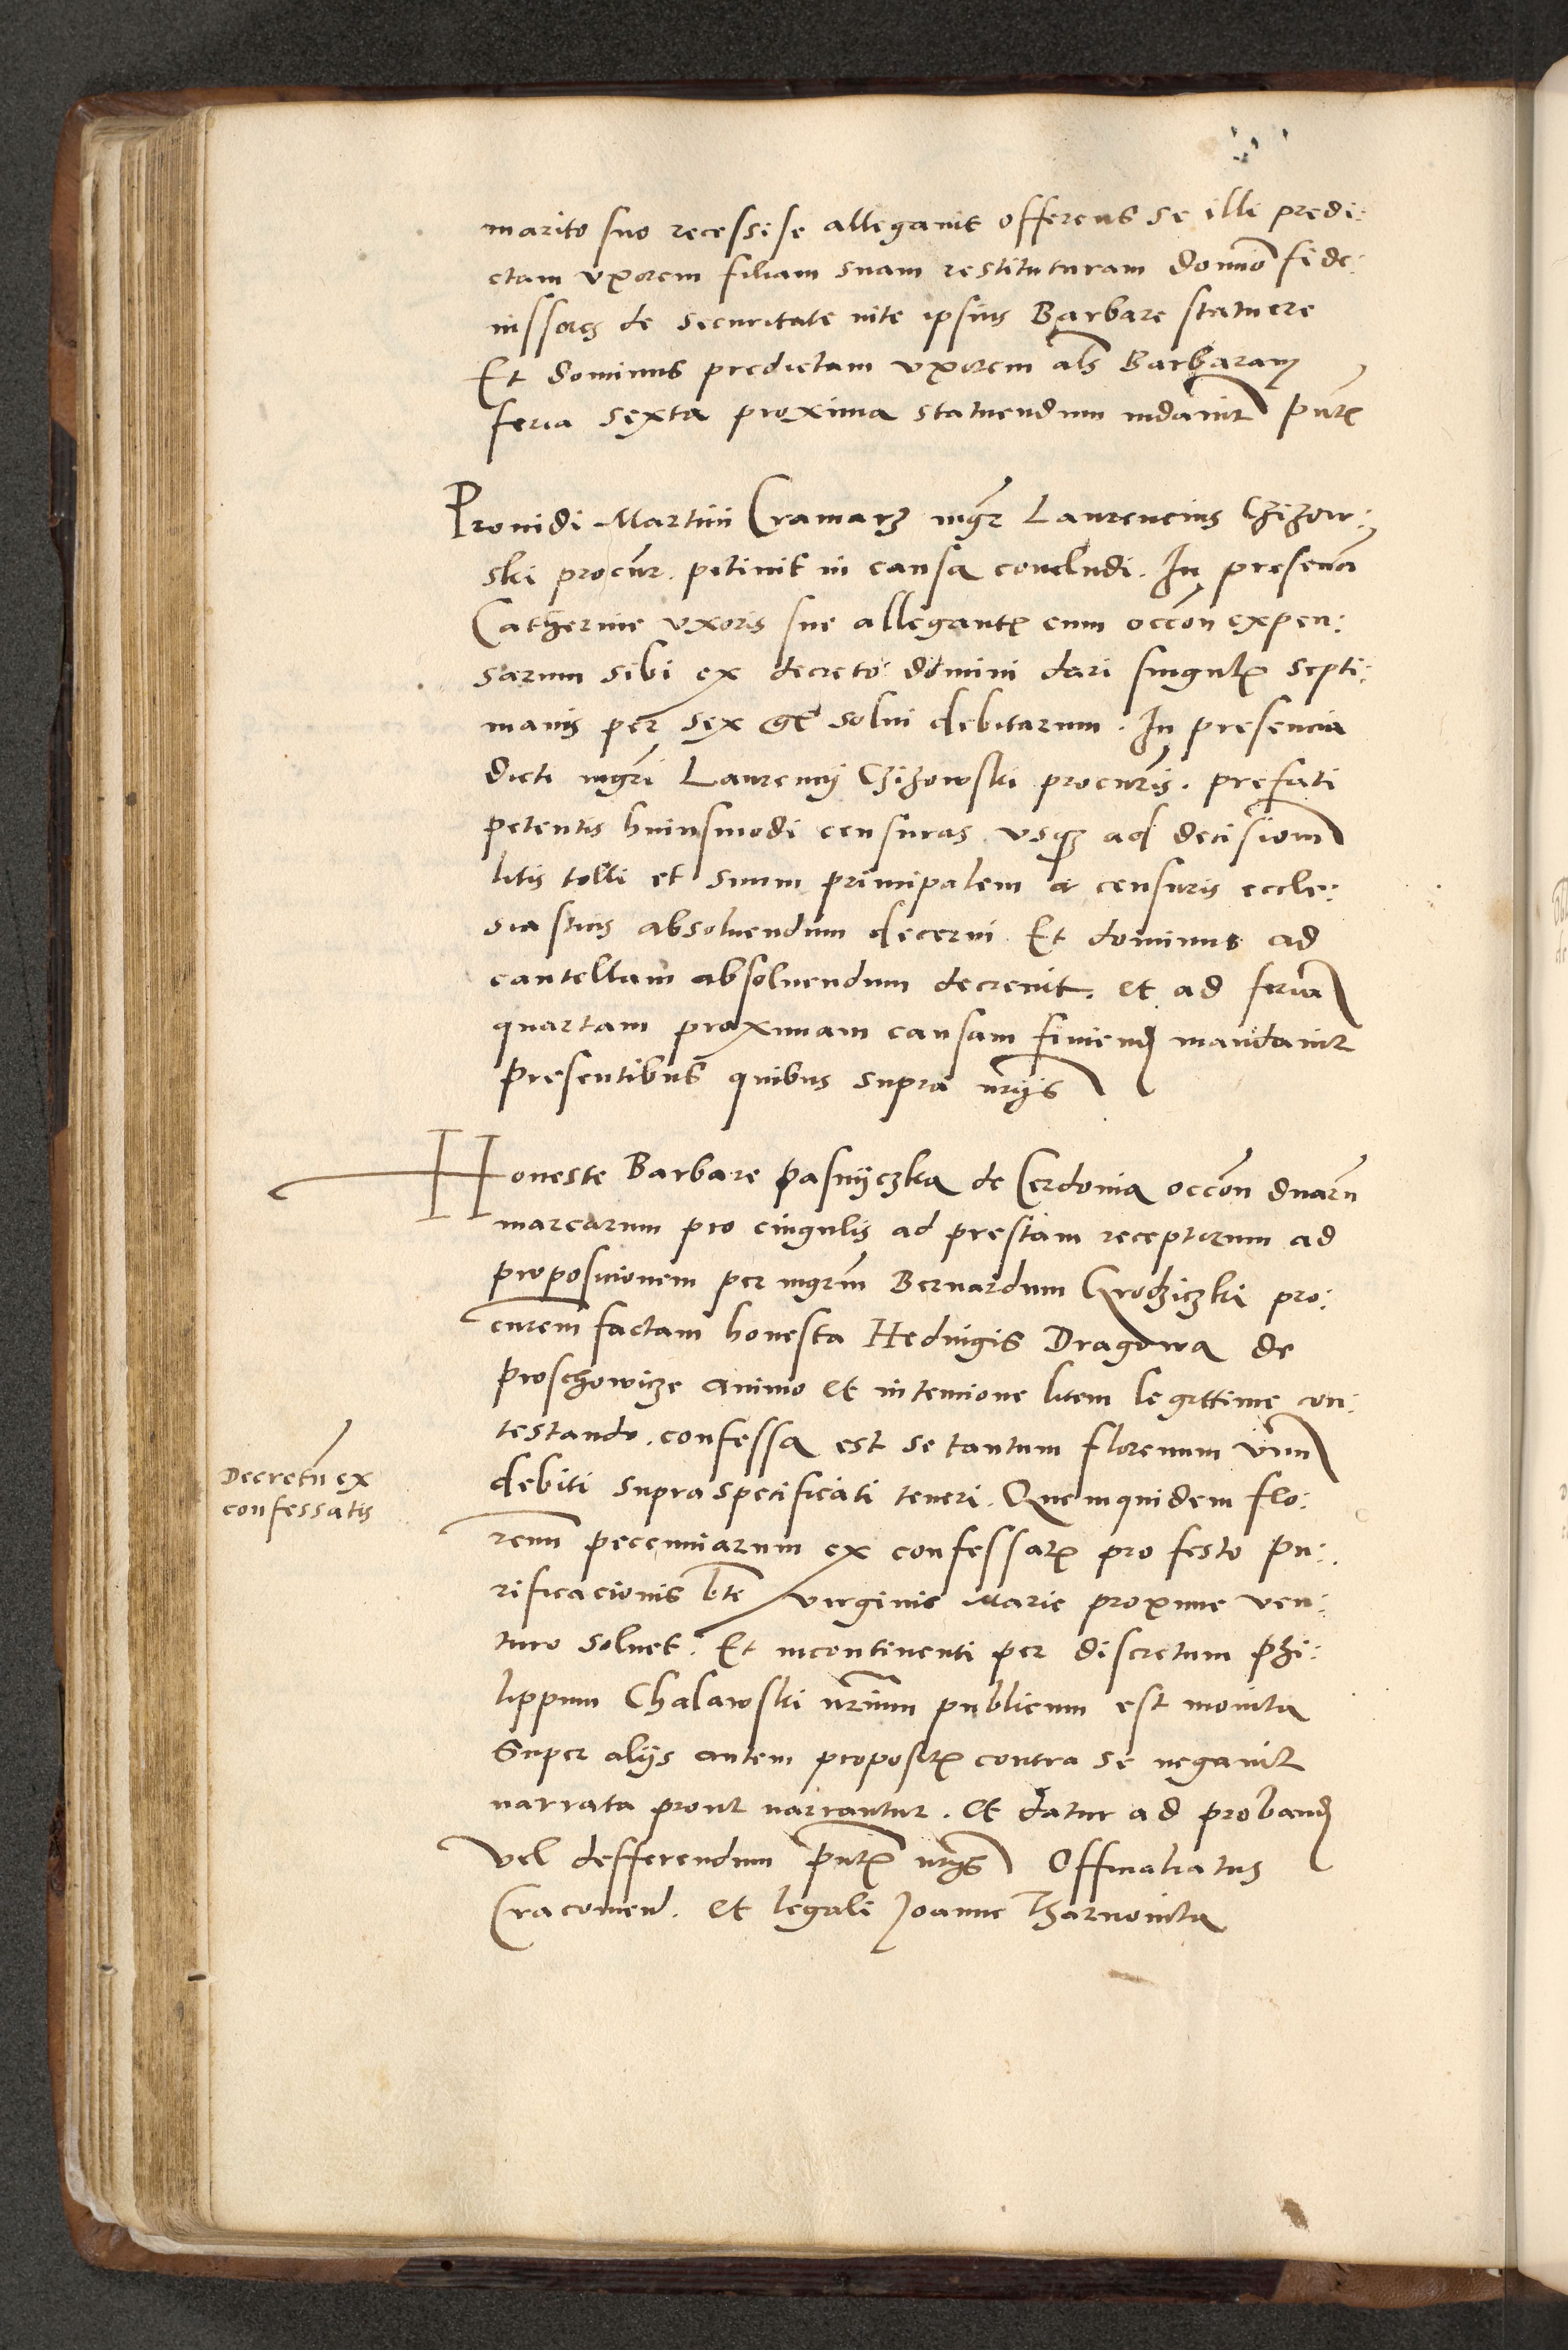 marito suo recessisse allegavit offerens se illi predi:
ctam uxorem filiam suam restituturam dummō fide:
iussores de securitate vite ipsius Barbare statuere
Et dominus predictam uxorem als Barbaram
feria sexta proxima statuendum mdavit pntˀ
Providi Martini Cramarz mgr Laurencius Czizow:
ski procur. petivit in causa concludi. In presencia
Catherine uxoris sue allegantˀ eum occōn expen:
sarum sibi ex decreto domini dari singulˀ septi:
manis per sex gˢ solvi debitarum. In presencia
dicti mgri Laurency Czizowski procuris. prefati
petentis huiusmodi censuras usqz ad decisionē
litis tolli et suum principalem a censuris eccle:
siasticis absolvendum decerni. Et dominus ad
cautellam absolvendum decrevit. et ad feriā
quartam proximam causam finiend mandavit
presentibus quibus supra nrijs
Honeste Barbare Pasnyczka de Cerdonia occōn duarū
marcarum pro cingulis ad prestam receptorum ad
proposicionem per mgrm Bernardum Grodziczki pro:
curem factam honesta Hedvigis Dragowa de
Proschowicze animo et intencione litem legittime con:
testando. confessa est se tantum florenum unū
debiti supraspecificati teneri. Quemquidem flo:
renū peccuniarum ex confessatˀ pro festo Pu:
rificacionis bte virginis Marie proxime ven:
turo solvet. Et incontinenti per discretum Phi:
lippum Chalawski nrium publicum est monita
Super alijs autem propositˀ contra se negavit
narrata prout narrantur. et datur ad proband
vel defferendum pntˀ nrijs Officialatus
Cracovien. et legali Joanne Tharnovita
Decretū ex
confessatis